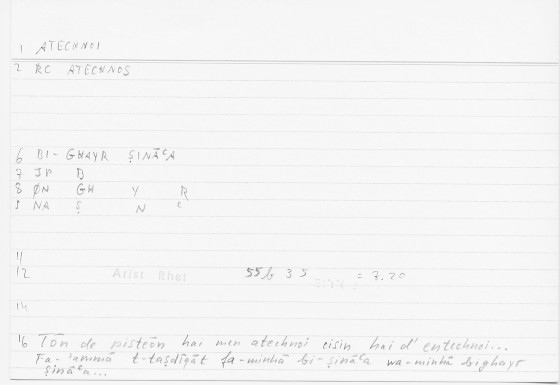 1 ATECHNOI
2 RC ATECHNOS
6 BI-GHAYR ṢINĀᶜA
7 JP B
8 ØN GH Y R
9 NA Ṣ N ᶜ
11
12 Arist Rhet 55b 35 = 7.20
14
16 Tōn de pisteōn hai men atechnoi eisin hai d' entechnoi...
Fa-'ammā t-taṣdīqāt fa-minhā bi-ṣināᶜa wa-minhā bighayr
ṣināᶜa...